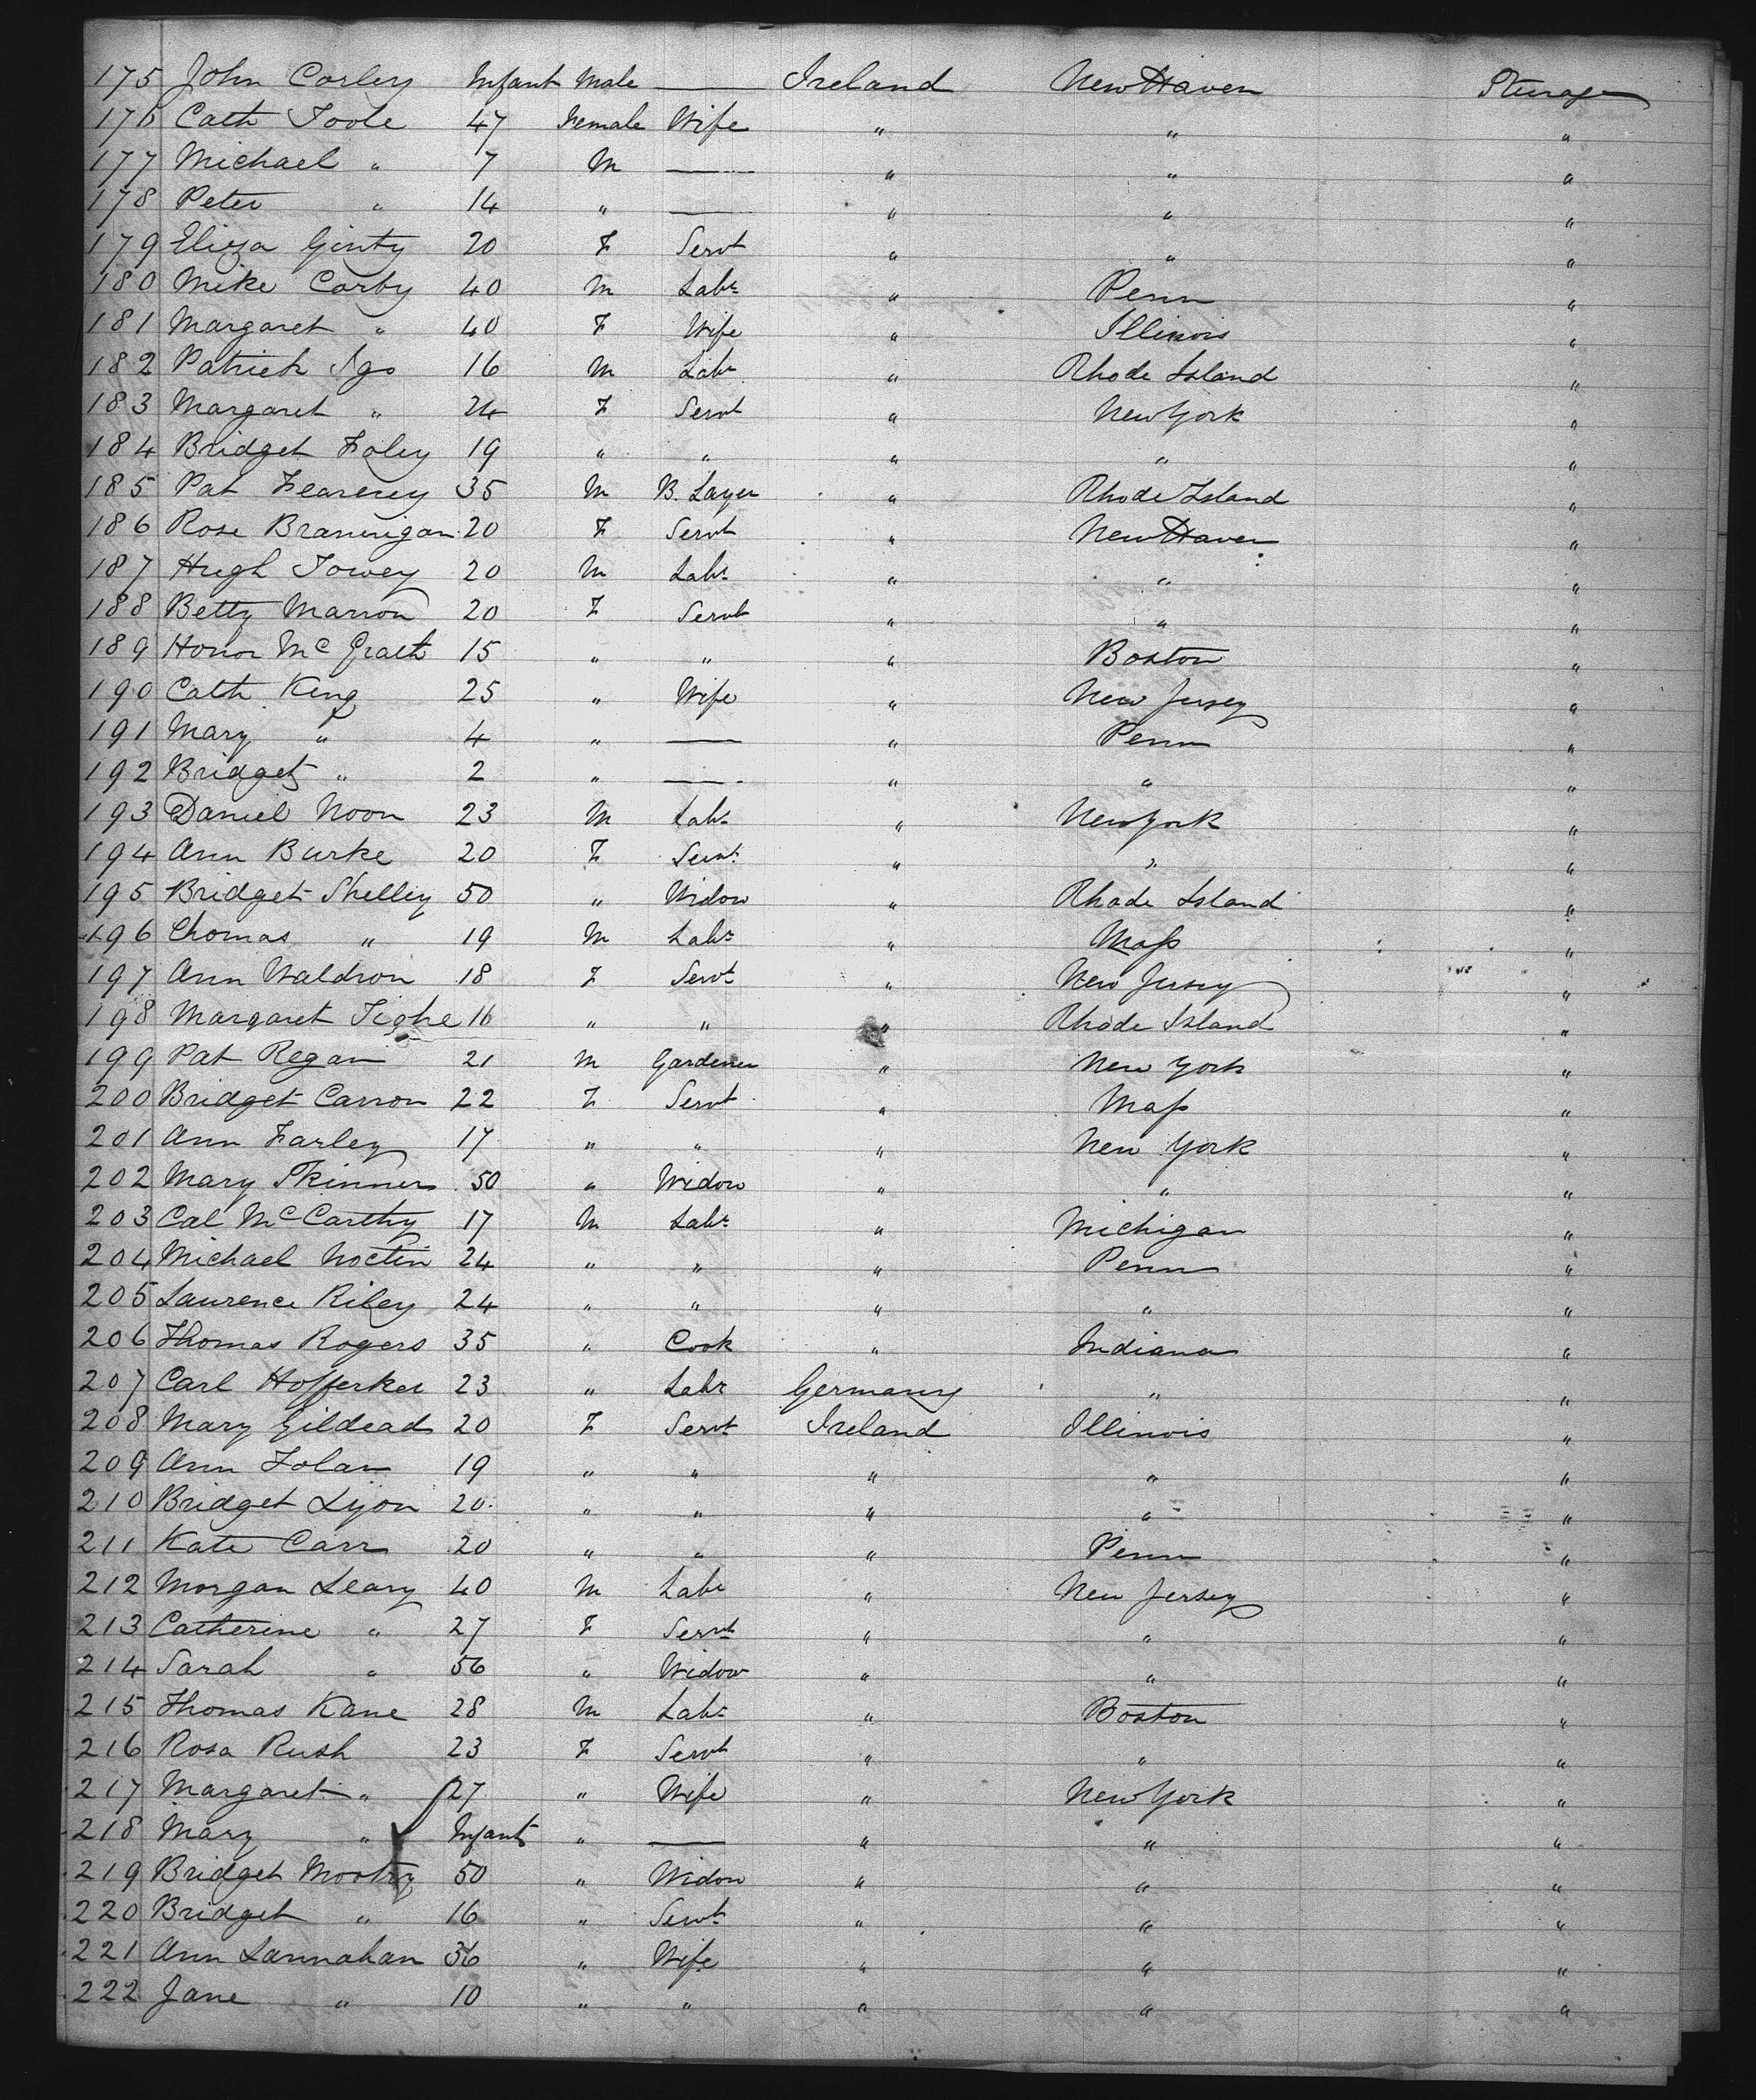 175 John Corley Infant Male — Ireland New Haven Steerage
176 Cath Toole 47 Female Wife " " "
177 Michael " 7 M — " " "
178 Peter " 14 " — " " "
179 Eliza Ginty 20 F Servt " " "
180 Mike Corby 40 M Labr " Penn "
181 Margaret " 40 F Wife " Illinois "
182 Patrick Igo 16 M Labr " Rhode Island "
183 Margaret " 24 F Servt " New York "
184 Bridget Foley 19 " " " " "
185 Pat 35 M B. Layer " Rhode Island "
186 Rose Brannigan 20 F Servt " New Haven "
187 Hugh Towey 20 M Labr " " "
188 Betty Marron 20 F Servt " " "
189 Honor McGrath 15 " " " Boston "
190 Cath King 25 " Wife " New Jersey "
191 Mary " 4 " — " Penn "
192 Bridget " 2 " — " " "
193 Daniel Noon 23 M Labr " New York "
194 Ann Burke 20 F Servt " " "
195 Bridget Shelley 50 " Widow " Rhode Island "
196 Thomas " 19 M Labr " Mass "
197 Ann Waldron 18 F Servt " New Jersey "
198 Margaret Tighe 16 " " " Rhode Island "
199 Pat Regan 21 M Gardener " New York "
200 Bridget Carron 22 F Servt " Mass "
201 Ann Farley 17 " " " New York "
202 Mary Skinner 50 " Widow " " "
203 Cal McCarthy 17 M Labr " Michigan "
204 Michael Noctin 24 " " " Penn "
205 Laurence Riley 24 " " " " "
206 Thomas Rogers 35 " Cook " Indiana "
207 Carl Hofferker 23 " Labr Germany " "
208 Mary Gildead 20 F Servt Ireland Illinois "
209 Ann Folan 19 " " " " "
210 Bridget Lyon 20 " " " " "
211 Kate Carr 20 " " " Penn "
212 Morgan Leary 40 M Labr " New Jersey "
213 Catherine " 27 F Servt " " "
214 Sarah " 56 " Widow " " "
215 Thomas Kane 28 M Labr " Boston "
216 Rosa Rush 23 F Servt " " "
217 Margaret " 27 " Wife " New York "
218 Mary " Infant " — " " "
219 Bridget 50 " Widow " " "
220 Bridget " 16 " Servt " " "
221 Ann Lannahan 36 " Wife " " "
222 Jane " 10 " " " " "